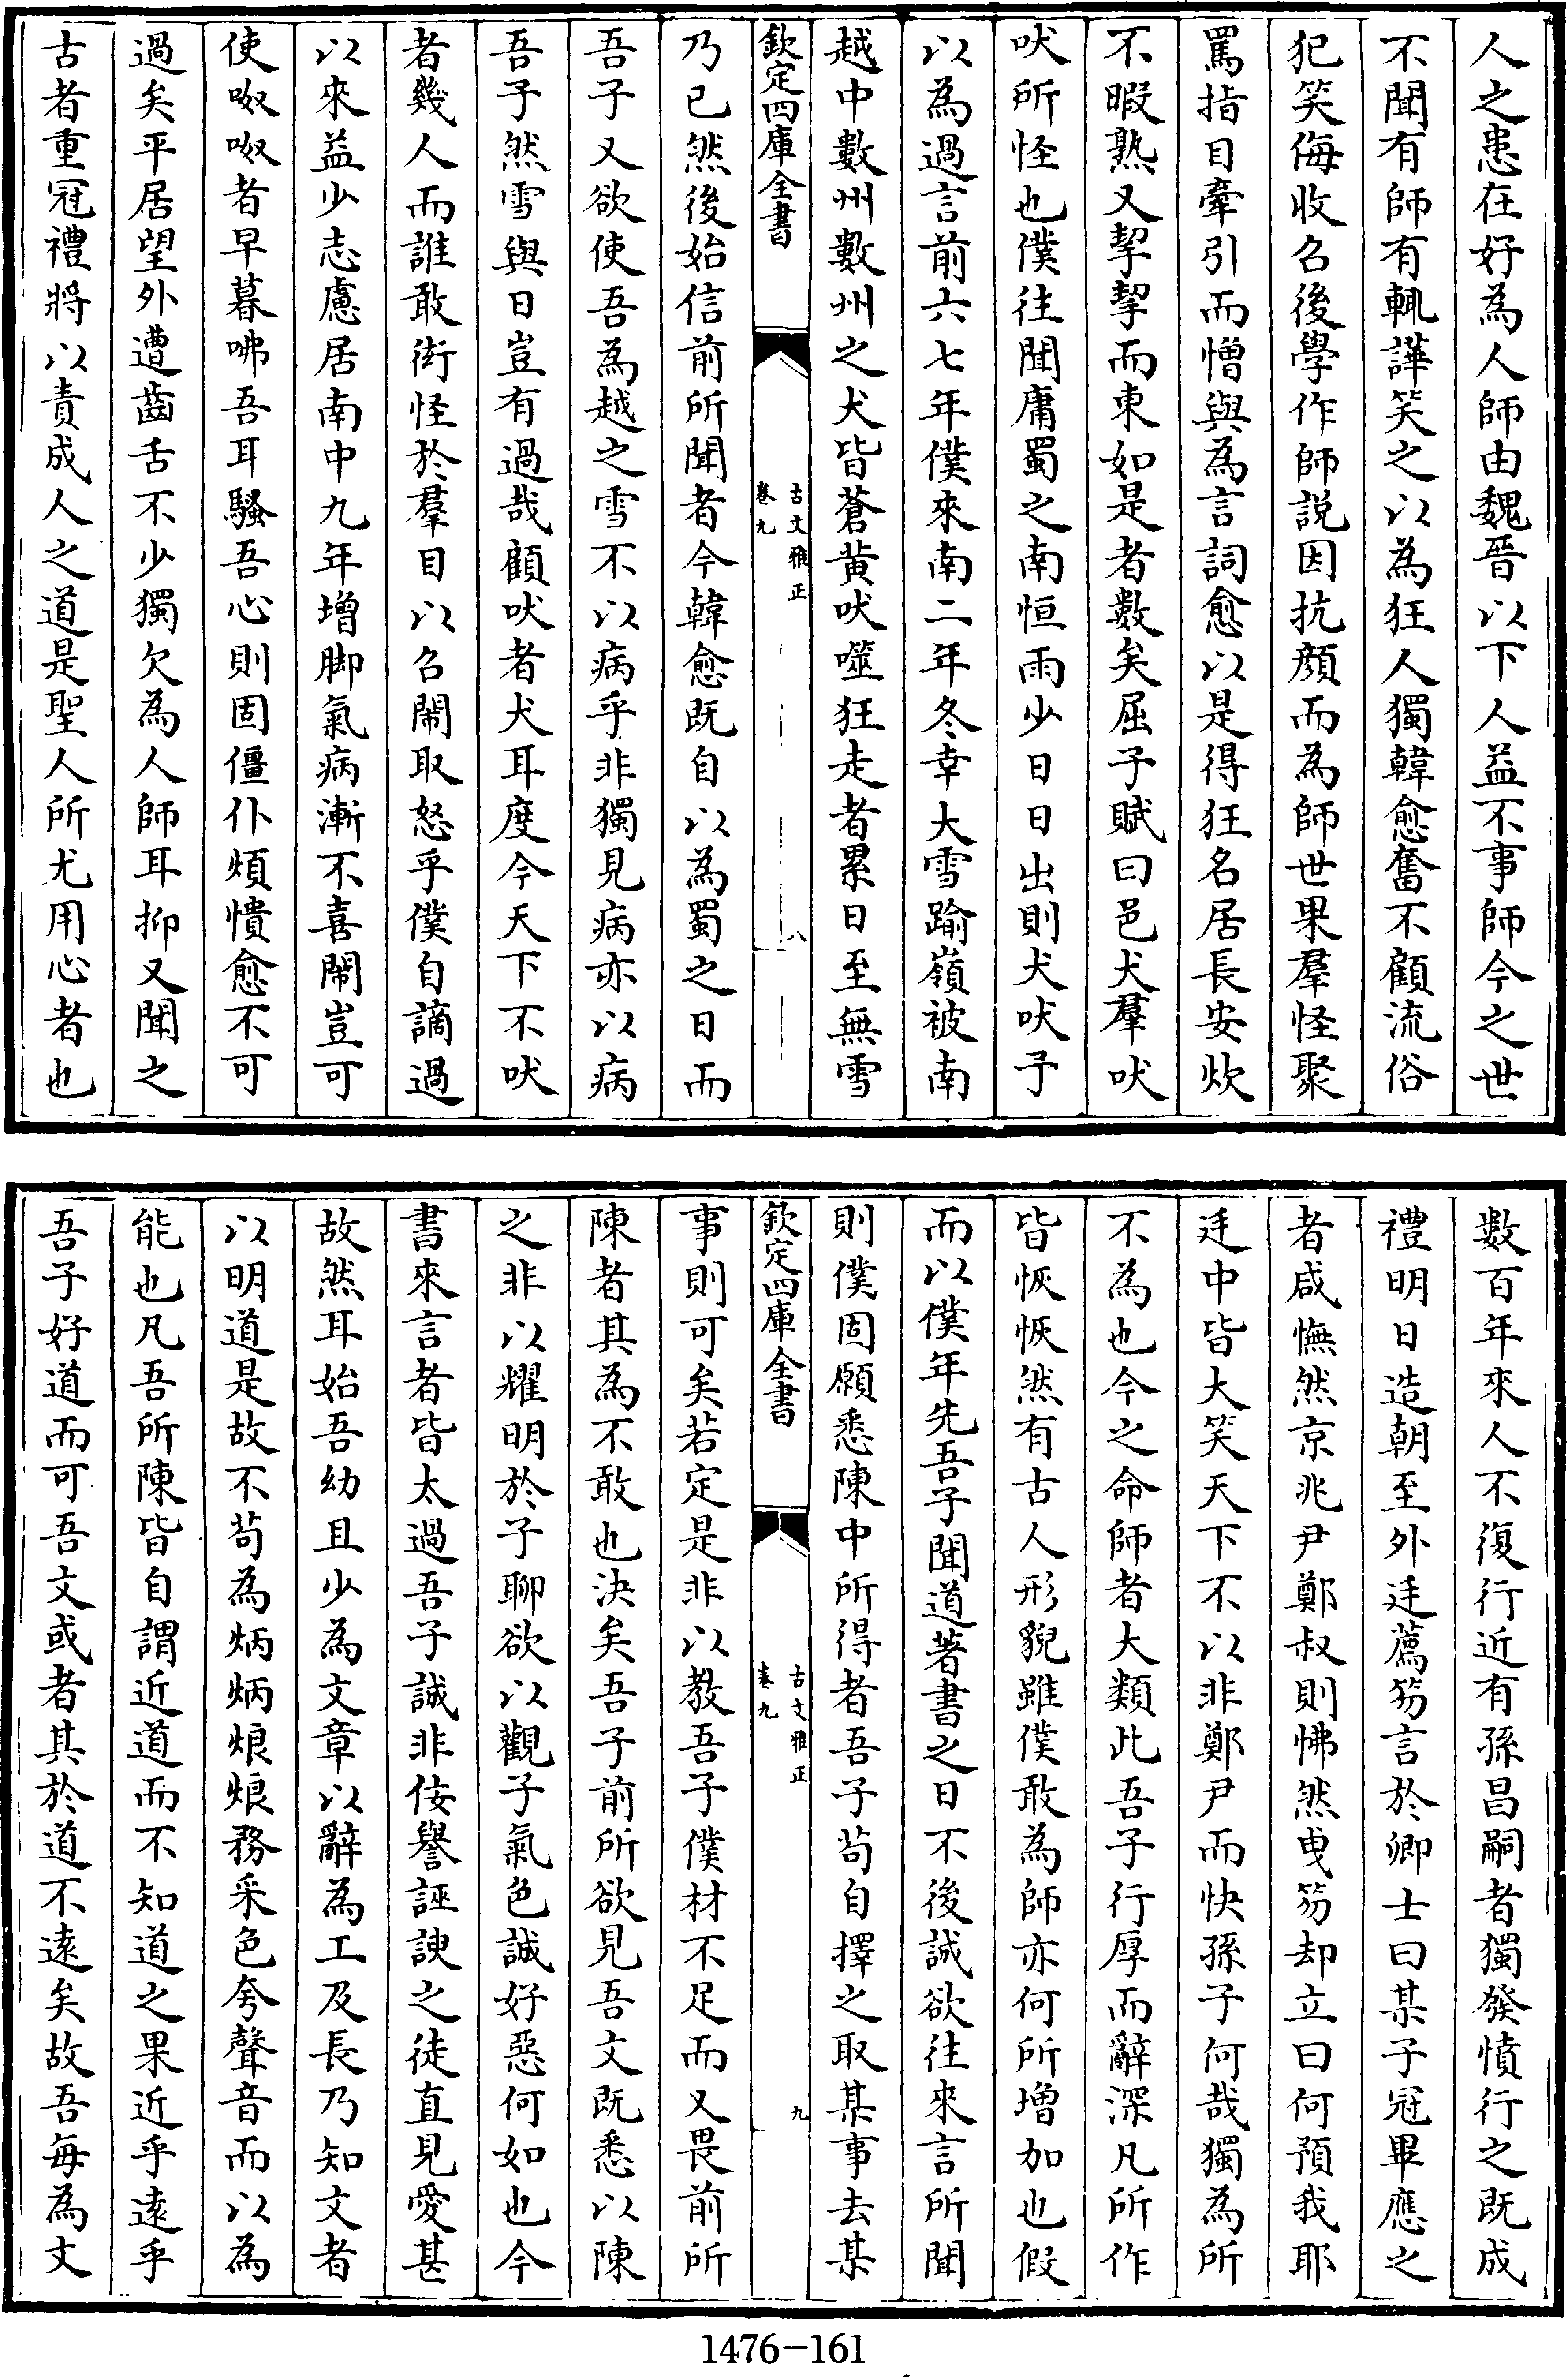 人之患在好為人師由魏晉以下人益不事師今之世
不聞有師有輒譁笑之以為狂人獨韓愈奮不顧流俗
犯笑侮收召後學作師説因抗顔而為師世果羣怪聚
罵指目牽引而憎與為言詞愈以是得狂名居長安炊
不暇熟又挈挈而東如是者數矣屈子賦曰邑犬羣吠
吠所怪也僕往聞庸蜀之南恒雨少日日出則犬吠予
以為過言前六七年僕來南二年冬幸大雪踰嶺被南
越中數州數州之犬皆蒼黄吠噬狂走者累日至無雪
欽定四庫全書
古文雅正
卷九
八
乃已然後始信前所聞者今韓愈既自以為蜀之日而
吾子又欲使吾為越之雪不以病乎非獨見病亦以病
吾子然雪與日豈有過哉顧吠者犬耳度今天下不吠
者幾人而誰敢衒怪於羣目以召鬧取怒乎僕自謫過
以來益少志慮居南中九年增脚氣病漸不喜鬧豈可
使呶呶者早暮咈吾耳騷吾心則固僵仆煩憒愈不可
過矣平居望外遭齒舌不少獨欠為人師耳抑又聞之
古者重冠禮將以責成人之道是聖人所尤用心者也
數百年來人不復行近有孫昌嗣者獨發憤行之既成
禮明日造朝至外廷薦笏言於卿士曰某子冠畢應之
者咸憮然京兆尹鄭叔則怫然曳笏却立曰何預我耶
廷中皆大笑天下不以非鄭尹而快孫子何哉獨為所
不為也今之命師者大類此吾子行厚而辭深凡所作
皆恢恢然有古人形貌雖僕敢為師亦何所增加也假
而以僕年先吾子聞道著書之日不後誠欲往來言所聞
則僕固願悉陳中所得者吾子茍自擇之取某事去某
欽定四庫全書
古文雅正
卷九
九
事則可矣若定是非以敎吾子僕材不足而又畏前所
陳者其為不敢也決矣吾子前所欲見吾文既悉以陳
之非以耀明於子聊欲以觀子氣色誠好惡何如也今
書來言者皆太過吾子誠非佞譽誣諛之徒直見愛甚
故然耳始吾幼且少為文章以辭為工及長乃知文者
以明道是故不茍為炳炳烺烺務采色夸聲音而以為
能也凡吾所陳皆自謂近道而不知道之果近乎遠乎
吾子好道而可吾文或者其於道不遠矣故吾每為文
1476-161